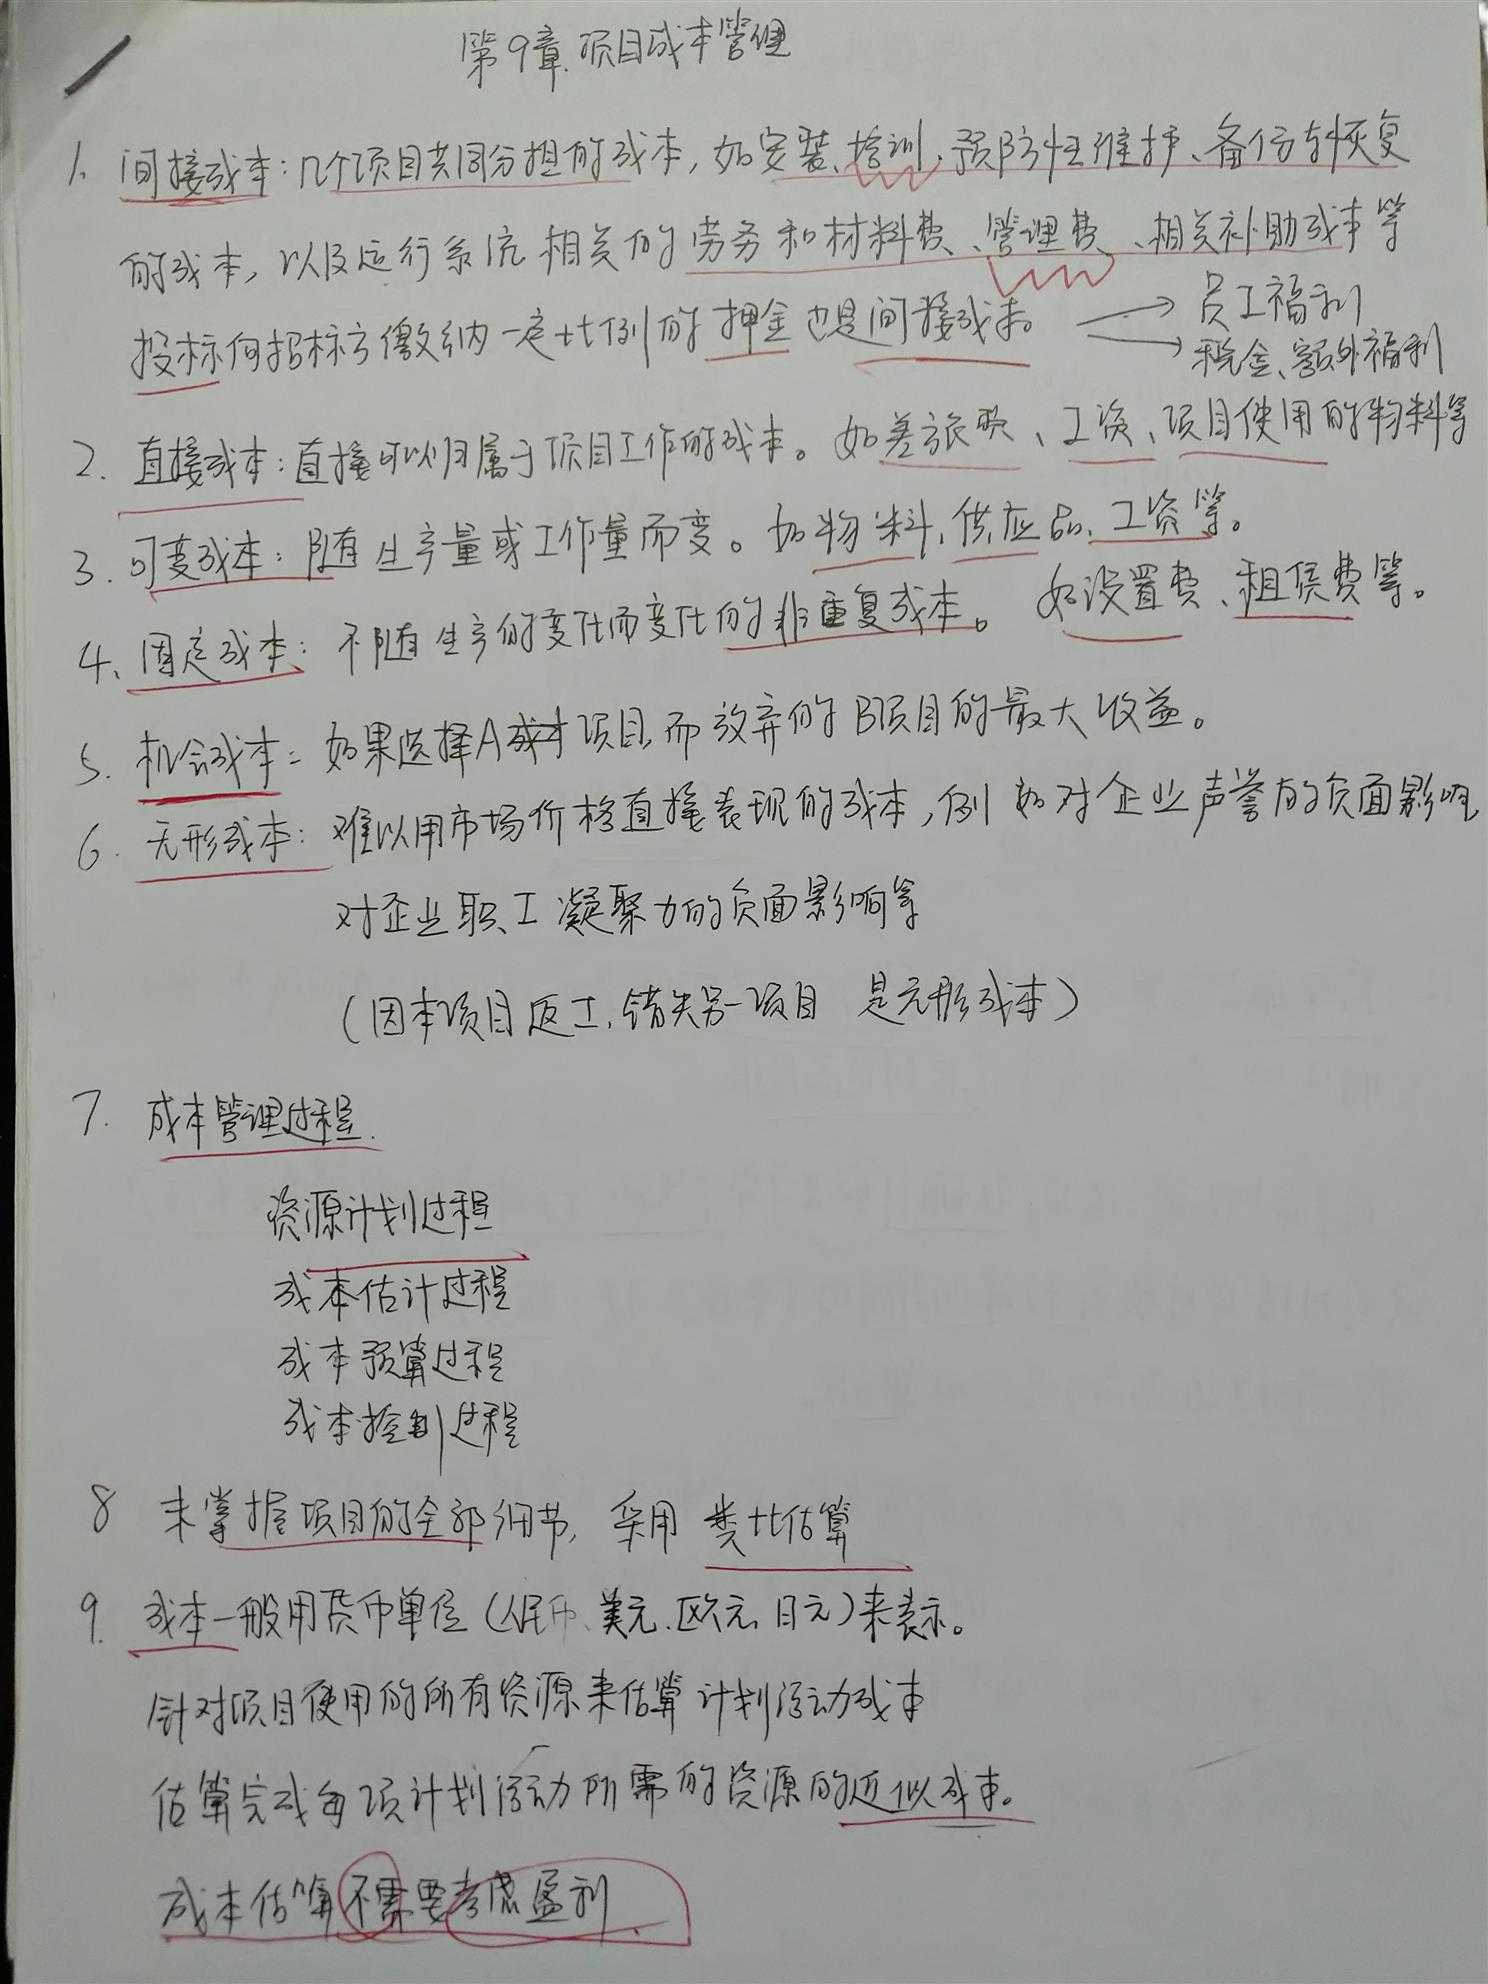 第9章.项目成本管理
1、间接成本:几个项目共同分担的成本,如安装、培训、预防性维护、备份与恢复
的成本,以及运行系统相关的劳务和材料费、管理费、相关补助成本等
投标向招标方缴纳一定比例的押金也是间接成本。→员工福利
→税金、额外福利
2.直接成本:直接可以归属于项目工作的成本。如差旅费、工资、项目使用的物料等
3.可变成本:随生产量或工作量而变。如物料、供应品、工资等。
4、固定成本:不随生产的变化而变化的非重复成本。如设置费、租赁费等。
5.机会成本:如果选择A项目,而放弃的B项目的最大收益。
6.无形成本:难以用市场价格直接表现的成本,例如对企业声誉的负面影响
对企业职工凝聚力的负面影响等
(因本项目返工,错失另一项目 是无形成本)
7.成本管理过程.
资源计划过程
成本估计过程
成本预算过程
成本控制过程
8 未掌握项目的全部细节,采用 类比估算
9.成本一般用货币单位(人民币、美元、欧元、日元)来表示。
针对项目使用的所有资源来估算计划活动成本
估算完成每项计划活动所需的资源的近似成本。
成本估算不需要考虑盈利.